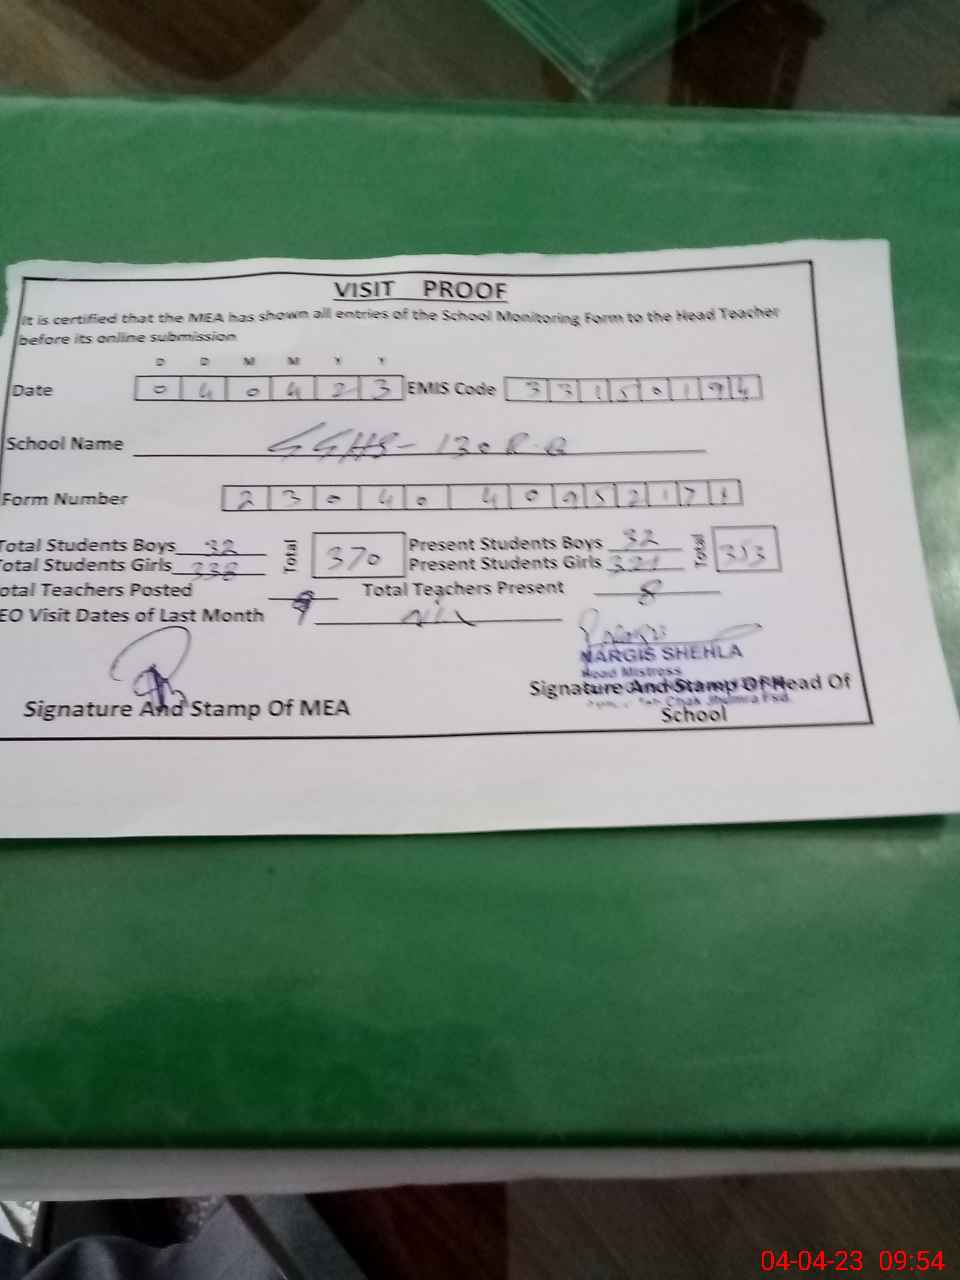 VISIT PROOF
It is certified that the MEA has shown all entries of the School Monitoring Form to the Head Teacher
before its online submission
D D M M Y Y
Date 0 4 0 4 2 3 EMIS Code 3 3 1 5 0 1 9 4
School Name GGHS-130 R.B
Form Number 2 3 0 4 0 4 0 9 5 2 1 7 1
Total Students Boys 32 Total 370 Present Students Boys 32 Total 353
Total Students Girls 338 Present Students Girls 321
otal Teachers Posted 9 Total Teachers Present 8
EO Visit Dates of Last Month Nil
NARGIS SHEHLA
Head Mistress
Signature And Stamp Of MEA Signature And Stamp Of Head Of
Chak Jhumra Fsd.
School
04-04-23 09:54